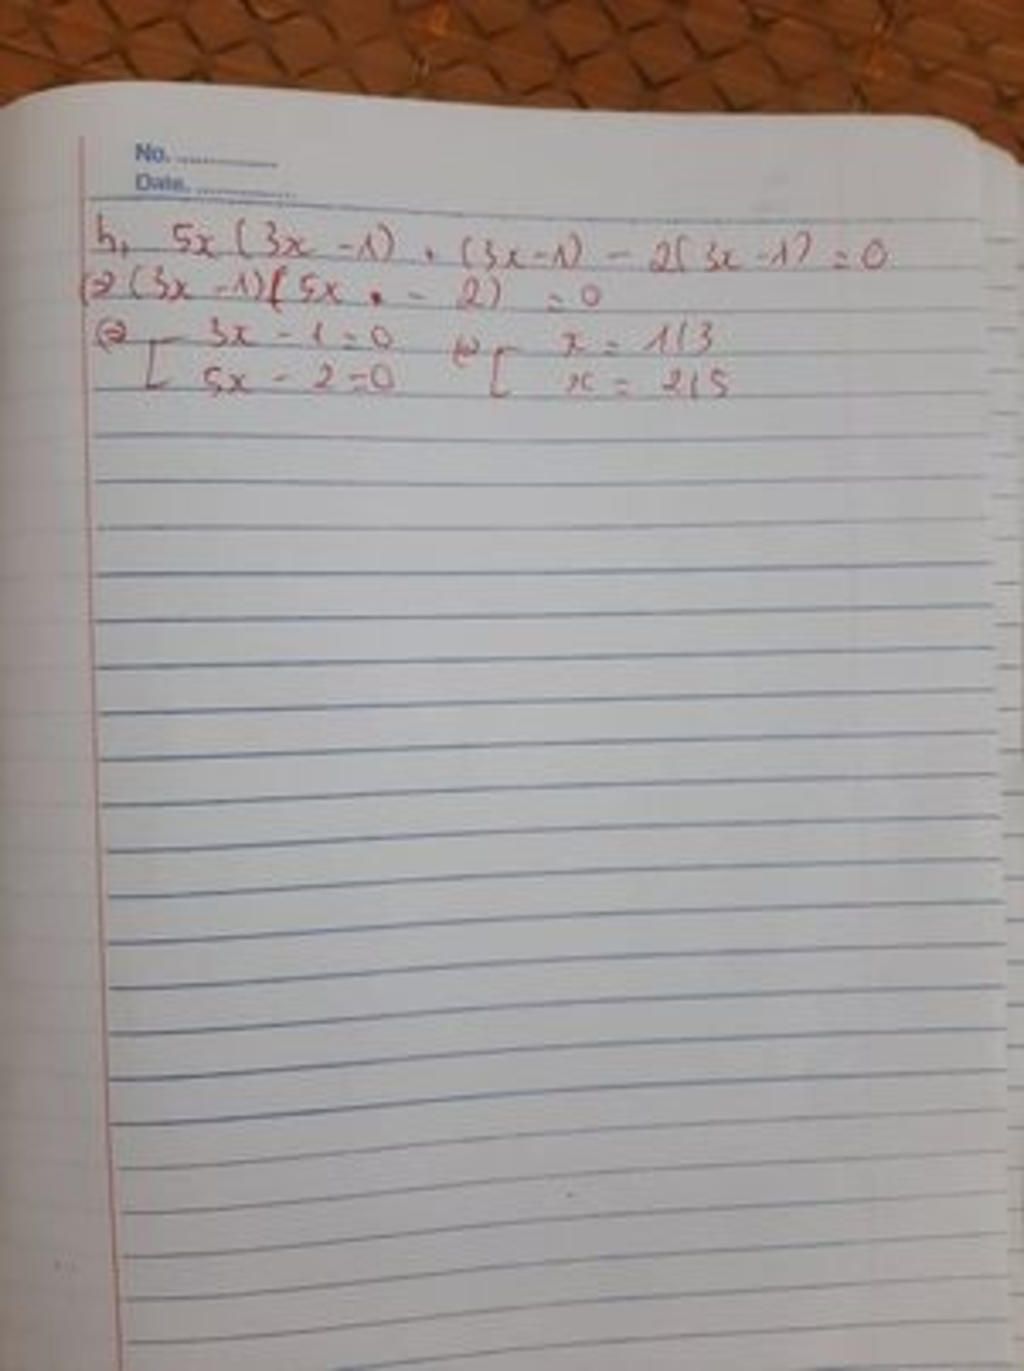 No. ............
Date. ............
h, 5x(3x-1) . (3x-1) - 2(3x-1) = 0
(=) (3x-1)(5x . - 2) = 0
(=) [ 3x - 1 = 0 (=) [ x = 1/3
5x - 2 = 0 x = 2/5